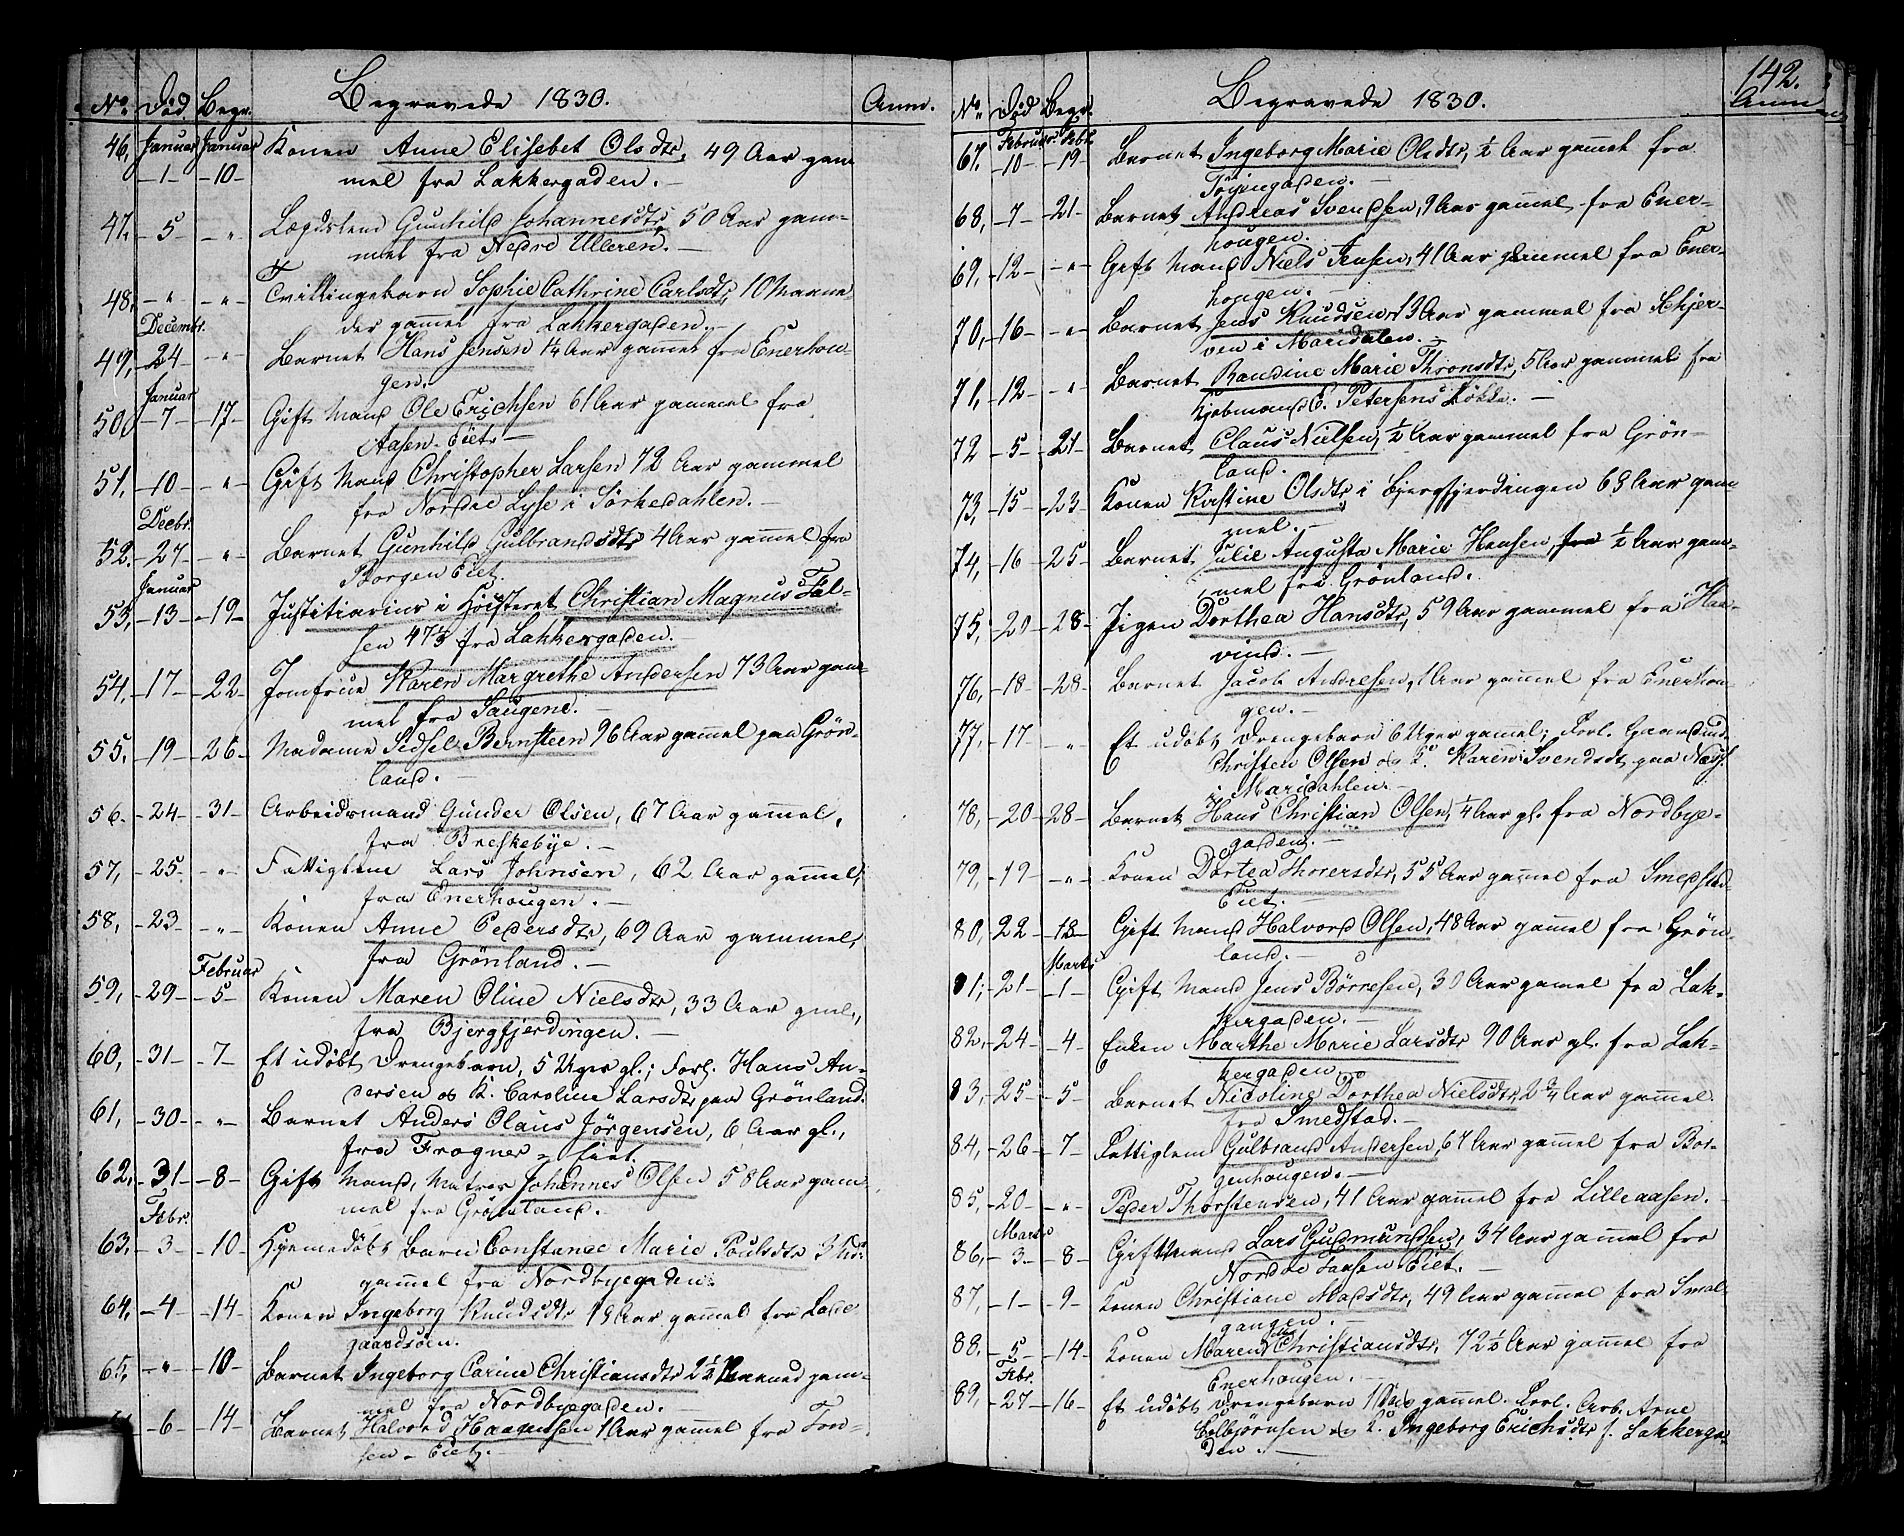 No. Død. Begr. Begravede 1830. Anm.
46, Januar 1 Januar 10 Konen Anne Elisebet Olsdtr, 49 Aar gam
mel fra Lakkergaden.
47, 5 " Lægdslem Gunhild Johannesdtr, 50 Aar gam-
mel fra Nedre Ulleren.
48, " " Tvillingebarn Sophie Cathrine Carlsdtr, 10 Maane-
der gammel fra Lakkergaden.
49, Decembr. 24 " Barnet Hans Jensen 1/4 Aar gammel fra Enerhou-
gen.
50, Januar 7 17 Gift Mand Ole Erichsen 61 Aar gammel fra
Aasen Eiet
51, 10 " Gift Mand Christopher Larsen 72 Aar gammel
fra Nordre Lyse i Sørkedahlen.
52. Decbr. 27 " Barnet Gunhild Gulbrandsdtr 4 Aar gammel fra
Borgen Eiet.
53, Januar 13 19 Justitiarius i Høiesteret Christian Magnus Fal-
sen 47 1/3 fra Lakkergaden.
54, 17 22 Jomfrue Karen Margrethe Andersen 73 Aar gam
mel fra Saugene.
55, 19 26 Madame Sidsel Bernsteen 96 Aar gammel paa Grøn-
land.
56. 24 31 Arbeidsmand Gunder Olsen, 67 Aar gammel,
fra Breskebye.
57, 25. " Fattiglem Lars Johnsen, 62 Aar gammel,
fra Enerhougen.
58, 23 " Konen Anne Pedersdtr, 69 Aar gammel,
fra Grønland.
59, 29 Februar 5 Konen Maren Oline Nielsdtr, 33 Aar gml.,
fra Bjergfjerdingen.
60, 31 7 Et udøbt Drengebarn, 5 Uger gl.; Forl. Hans An-
dersen og K. Caroline Larsdtr paa Grønland.
61, 30 " Barnet Anders Olaus Jørgensen, 6 Aar gl.,
fra Frogner-Eiet.
62, 31 8 Gift Mand, Matros Johannes Olsen 58 Aar gam
mel fra Grønland.
63, Febr. 3 10 Hjemedøbt Barn Constance Marie Poulsdtr 3
gammel fra Nordbyegaden.
64, 4 14 Konen Ingeborg Knudsdtr Aar gammel fra Lade
gaardsøen.
65, " 10 Barnet Ingeborg Carine Christiansdtr 2 1/2 Maaned gam-
mel fra Nordbyegaden.
6 14 Barnet Halvord Haagensen 1 Aar gammel fra Ton-
sen-Eiet.
142.
No. Død Begr. Begravede 1830. Anm
67. Februar 10 Febr. 19 Barnet Ingeborg Marie Olsdtr, 1/2 Aar gammel fra
Tøiengaden.
68, 7 21 Barnet Andreas Svendsen, 9 Aar gammel fra Ener-
hougen.
69, 12 " Gift Mand Niels Jensen, 41 Aar gammel fra Ener-
hougen.
70, 16 " Barnet Jens Knudsen Aar gammel fra Skjer-
ven i Maridalen.
71, 12 " Barnet Randine Marie Thronsdtr, 5 Aar gammel fra
Kjøbmand E. Petersens Løkke.
72 5 21 Barnet Claus Nielsen, 1/2 Aar gammel fra Grøn-
land.
73, 15 23 Konen Kirstine Olsdtr i Bjergfjerdingen 63 Aar gam
mel.
74, 16 25 Barnet Julie Augusta Marie Hansen, fra 1/2 Aar gam-
mel fra Grønland.
75, 20 28 Pigen Dorthea Hansdtr, 59 Aar gammel fra Haa-
vind.
76, 18 28 Barnet Jacob Andresen, 1 Aar gammel fra Enerhou-
gen.
77, 17 " Et udøbt Drengebarn 6 Uger gammel; Forl. Gaardmd.
Christen Olsen og K. Karen Svendsdt. paa
i Maridahlen.
78, 20 28 Barnet Hans Christian Olsen, 1/4 Aar gl. fra Nordbye-
gaden.
79, 19 " Konen Dortea Thorersdtr, 55 Aar gammel fra Smedstad
Eiet.
80, 22 18 Gift Mand Halvord Olsen, 48 Aar gammel fra Grøn-
land.
81, 21 Marts 1 Gift Mand Jens Børresen, 30 Aar gammel fra Lak-
kergaden.
82, 24 4 Enken Marthe Marie Larsdtr 90 Aar gl. fra Lak-
kergaden.
83, 25 5 Barnet Nicoline Dorthea Nielsdtr, 2 3/4 Aar gammel
fra Smedstad.
84, 26 7 Fattiglem Gulbrand Andersen, 67 Aar gammel fra Bor-
genhougen.
85, 20 " Peder Thorstensen, 41 Aar gammel fra Lilleaasen.
86, Marts 3 8 Gift Mand Lars Gudmundsen, 34 Aar gammel fra
Nordre Aasen Eiet.
87, 1 9 Konen Christiane Madsdtr, 49 Aar gammel fra Smal-
gangen.
88, 5 14 Konen Maren Christiansdtr, 72 1/2 Aar gammel fra
Enerhougen.
89, Febr. 27 16 Et udøbt Drengebarn 1 Dag gammel. Forl. Arb. Arne
Colbjørnsen og K. Ingeborg Erichsdtr f. Lakkerga-
den.